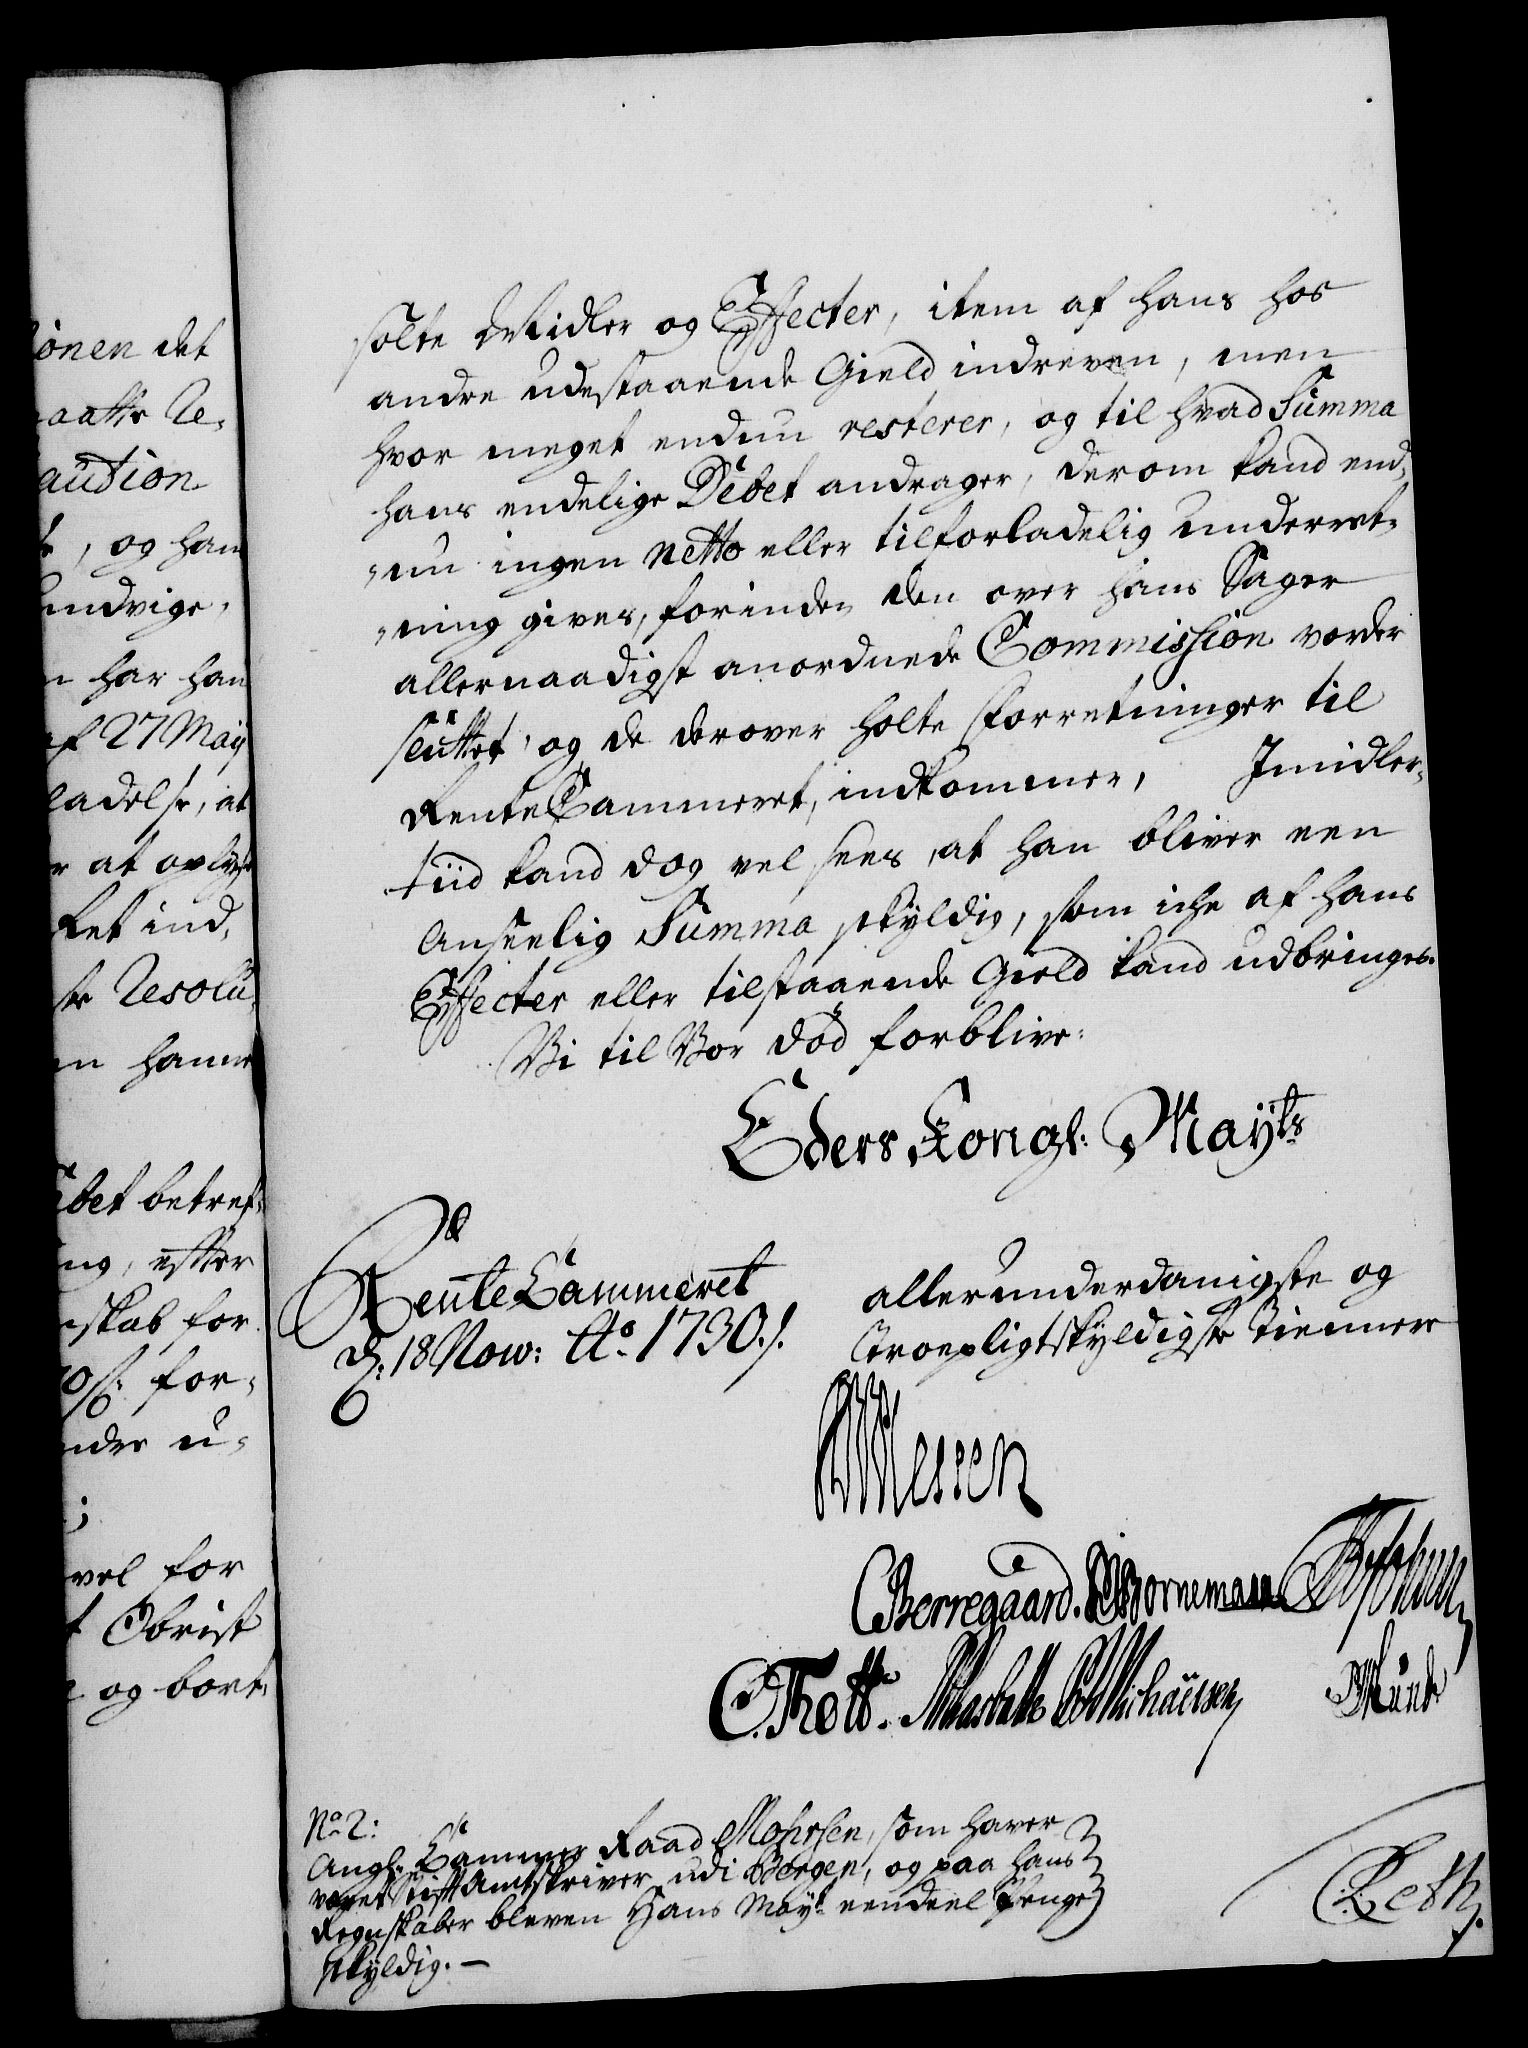 ionen det
aatte Re-
aution
, og han
undvige,
n har han
af 27 Maij
ladelse, at
r at oplyse
ket ind,
ste Resolu-
en hanne
bet betref-
ing, efter
nskab for
for-
nder u-
vel for
t Obrist
e og bort-
solte Midler og Effecter, item af hans hos
andre udestaaende Gield indreven, men
hvor meget endnu resterer, og til hvad Summa
hans endelige Debet andrager, derom kand end-
-nu ingen netto eller tilforladelig underret-
-ning gives, forinden den over hans Sager
allernaadigst anordnede Commission vorder
sluttet, og de derover holte forretninger til
RenteCammeret, indkommer, Imidler-
tiid kand dog vel sees, at han bliver een
Anseelig Summa skyldig, som iche af hans
Effecter eller tilstaaende Gield kand udbringes.
Vi til Vor død forblive:
Eders Kongl: Mayts
RenteCammeret
d: 18 Nov: Ao 1730./.
allerunderdanigste og
Troepligtskyldigste Tienner
Wessen
CBerregaard. Bornemann
O. Thott. Michaelsen Munk
No 2:
Angl. Cammer Raad Mohrsen, som haver
været Stift Amtskriver udi Bergen, og paa hans
Regnskaber bleven Hans Mayt eendeel Penge
skyldig. —